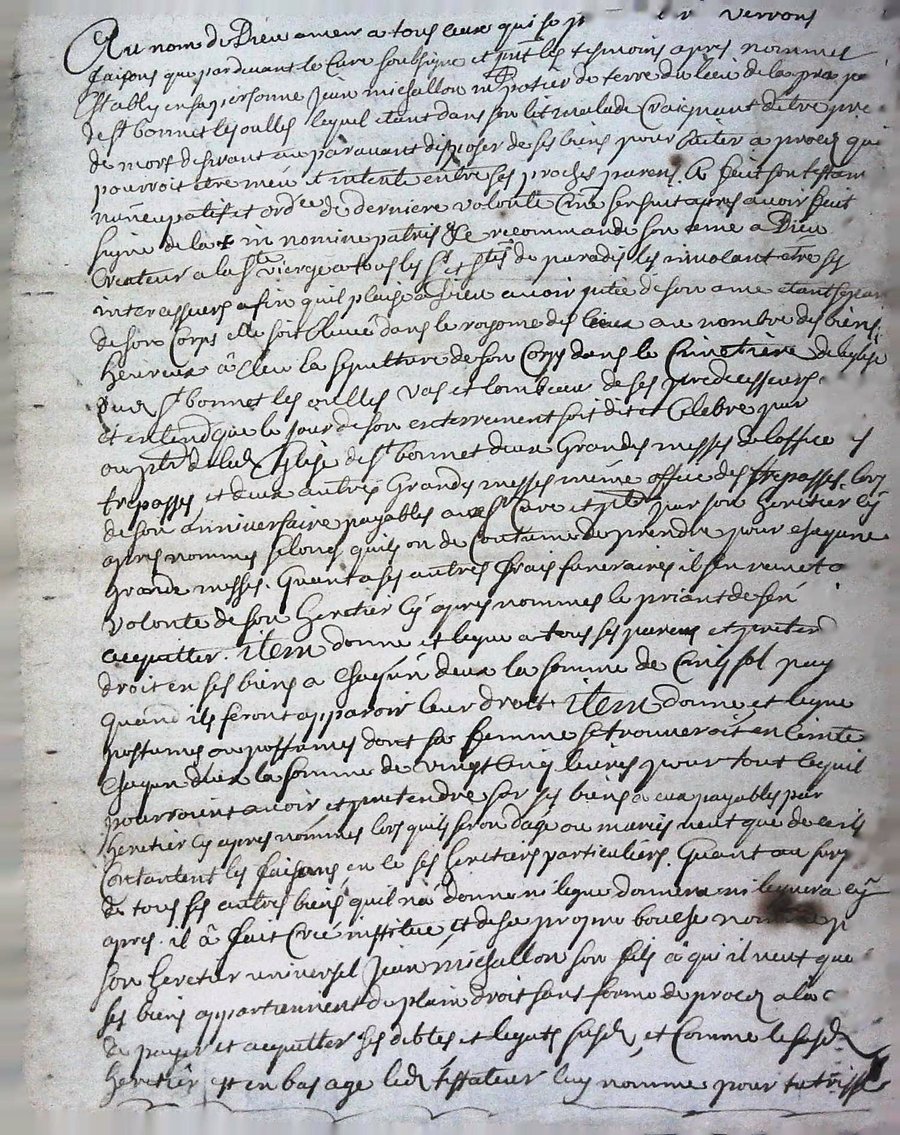 Au nom de Dieu amen a tous ceux qui ces p verrons
faisons que pardevant le Cure soubsigne et p^nt les tesmoins apres nommes
Establi en sa personne Jean michallon potier de terre du lieu de la
de st bonnet les oulles lequel etant dans son lit malade Craignant detre
de mort desirant auparavant disposer de ses biens pour eviter a proces qui
pourroit etre meu et intente entre ses proches parens. A fait son testam
nuncupatif et ord^ce de derniere volonte Come sensuit apres avoir fait
signe de la + in nomine patris &c recommande son ame a Dieu
Createur a la Ste vierge a tous les Sts et Stes de paradis les invoquant etre ses
intercesseurs afin quil plaise a Dieu avoir pitie de son ame etant separe
de son Corps elle soit elevée dans le royome des Cieux au nombre des biens
heureux â Eleu la sepulture de son Corps dans le Cimetière de leglise
dud St bonnet les oulles vas et tombeau de ses predecesseurs.
et entend que le jour de son enterrement soit dit et Celebre par
ou p^tres de lad Eglise de St bonnet deux Grandes messes de loffice
trepasses et deux autres Grandes messes même office des trepasses lors
de son anniversaire payables aux Sr Cure et p^tres par son heretier cy
apres nommes selond quils on de Coutume de prendre pour chaqune
grande messes. Quant a ses autres frais funeraires il sen remet a
volonte de son heretier Cy apres nommes le priant de sen
acquitter. item donne et legue a tous ses parens et preten
droit en ses biens a Chaqun deux la somme de Cinq sol pay
quand ils feront apparoir leur droit. item donne et legue
postumes ou postumes dont sa femme se trouveroit enceinte
Chaqun deux la somme de vingt Cinq livres pour tout ce quil
pourroient avoir et pretendre sur ses biens a eux payables par
heretier Cy apres nommes lors quils seron dage ou maries veut que de ce ils
Contentent les faisans en ce ses heretiers particuliers. Quant au surp
de tous ses autres biens quil n'a donne ni legue donnera ni leguera cy
apres. il â fait Cree institue et de sa propre bouche nomme
son heretier universel Jean michallon son fils â qui il veut que
ses biens appartiennent de plain droit sans forme de proces a la c
de payer et acquitter ses debtes et legats susd. et Comme le susd
heretier est en bas age led testateur luy nomme pour tutrisse